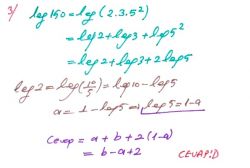 3) log150 = log(2.3.5²)
= log2 + log3 + log5²
= log2 + log3 + 2log5
log2 = log(10/5) = log10 - log5
a = 1 - log5 ⇒ log5 = 1-a
Cevap = a + b + 2(1-a)
= b - a + 2
CEVAP: D